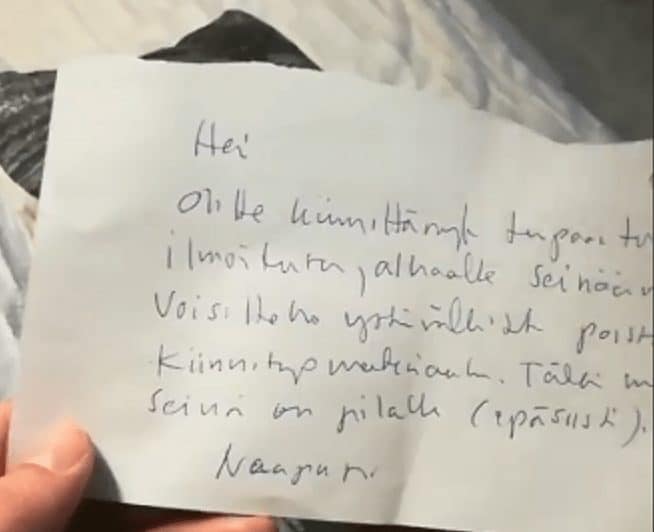 Hei
Olitte kiinnittänyt tupaantu
ilmoituksen, alhaalle seinään
Voisitteko ystävällisesti poist
kiinnitysmateriaalin. Tällä
seinä on pilalle (epäsiisti).
Naapuri